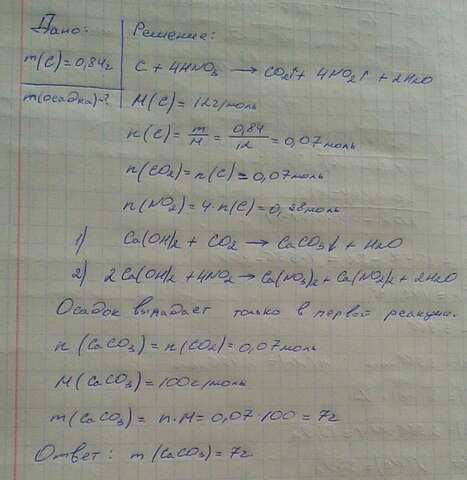 Дано:
Решение:
m(C)=0,84г
C + 4HNO3 → CO2↑ + 4NO2↑ + 2H2O
m(осадка)-?
M(C) = 12г/моль
n(C) = m/M = 0,84/12 = 0,07моль
n(CO2) = n(C) = 0,07моль
n(NO2) = 4·n(C) = 0,28моль
1) Ca(OH)2 + CO2 → CaCO3↓ + H2O
2) 2Ca(OH)2 + 4NO2 → Ca(NO3)2 + Ca(NO2)2 + 2H2O
Осадок выпадает только в первой реакции.
n(CaCO3) = n(CO2) = 0,07моль
M(CaCO3) = 100г/моль
m(CaCO3) = n·M = 0,07·100 = 7г
Ответ: m(CaCO3) = 7г